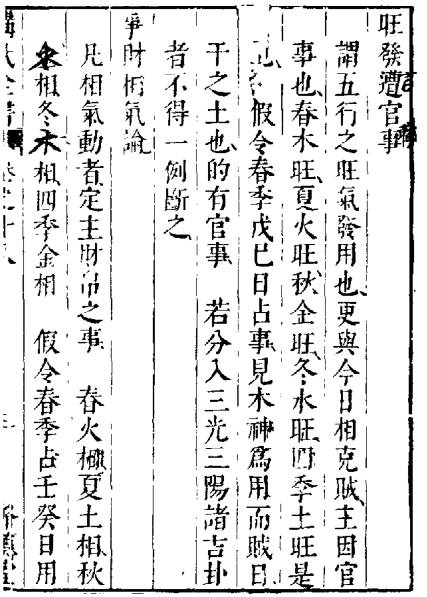 旺發遭官事
謂五行之旺氣發用也更與今日相克賊主因官
事也春木旺夏火旺秋金旺冬水旺四季土旺是
也 假令春季戊巳日占事見木神為用而賊日
干之土也的有官事 若分入三光三陽諸吉卦
者不得一例斷之
爭財相氣論
凡相氣動者定主財帛之事 春火相夏土相秋
水相冬木相四季金相 假令春季占壬癸日用